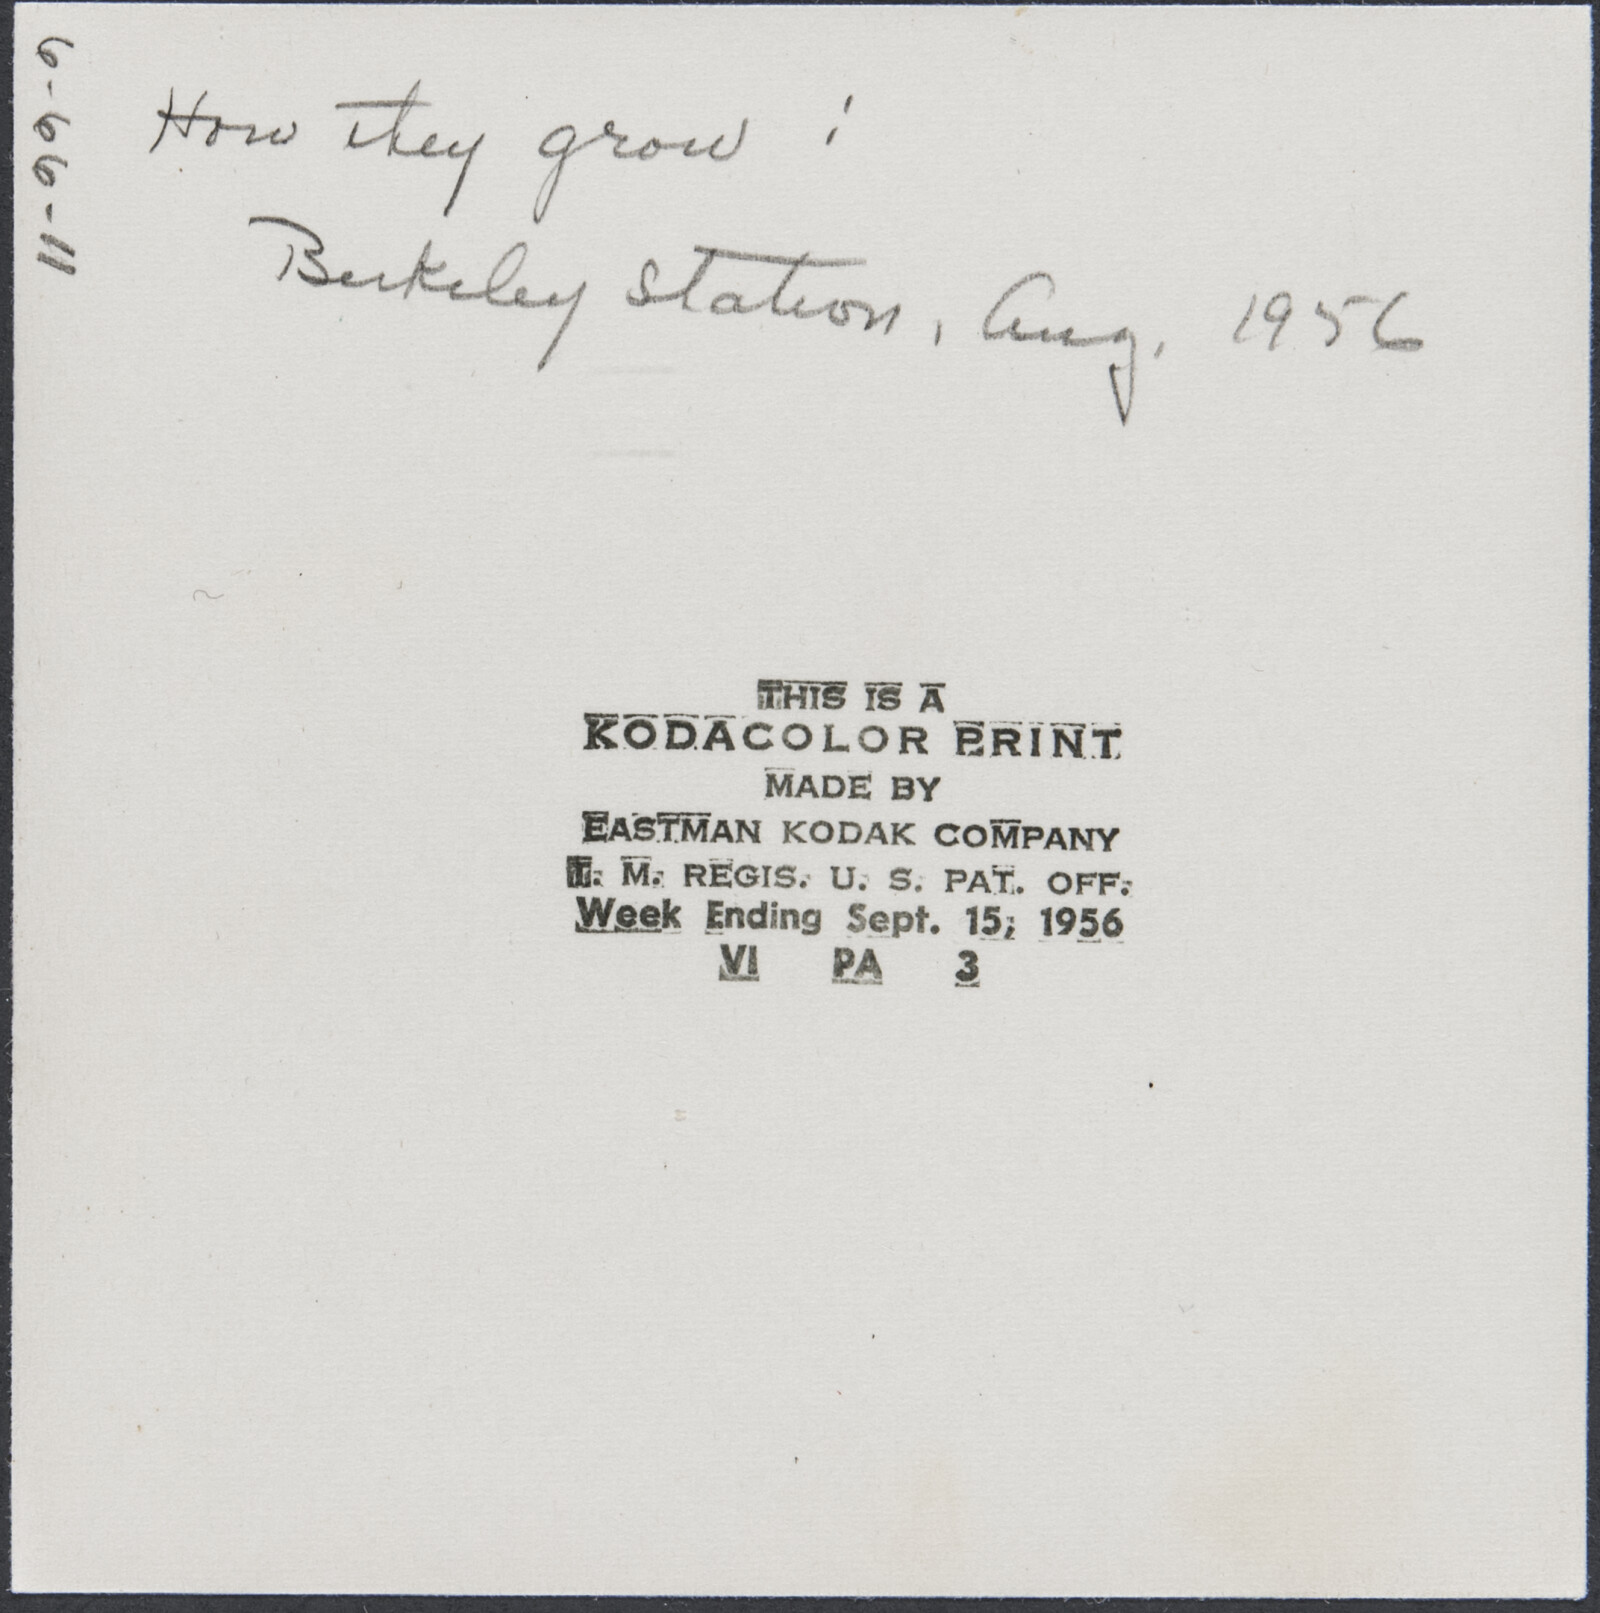 How they grow !
Berkeley Station, Aug. 1956
THIS IS A
KODACOLOR PRINT
MADE BY
EASTMAN KODAK COMPANY
T. M. REGIS. U. S. PAT. OFF.
Week Ending Sept. 15, 1956
VI PA 3